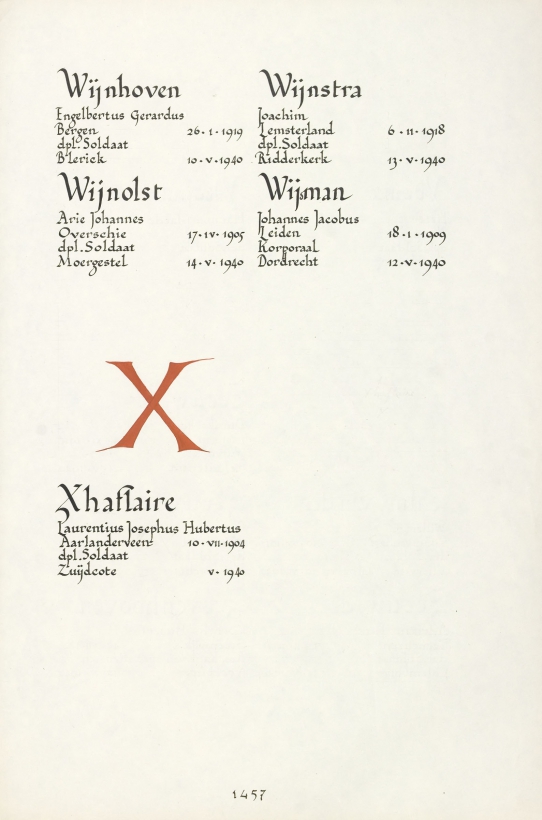 Wijnhoven
Engelbertus Gerardus
Bergen 26·1·1919
dpl. Soldaat
Blerick 10·V·1940
Wijnolst
Arie Johannes
Overschie 17·IV·1905
dpl. Soldaat
Moergestel 14·V·1940
Wijnstra
Joachim
Lemsterland 6·11·1918
dpl. Soldaat
Ridderkerk 13·V·1940
Wijsman
Johannes Jacobus
Leiden 18·1·1909
Korporaal
Dordrecht 12·V·1940
X
Xhaflaire
Laurentius Josephus Hubertus
Aarlanderveen 10·VII·1904
dpl. Soldaat
Zuijdcote V·1940
1457